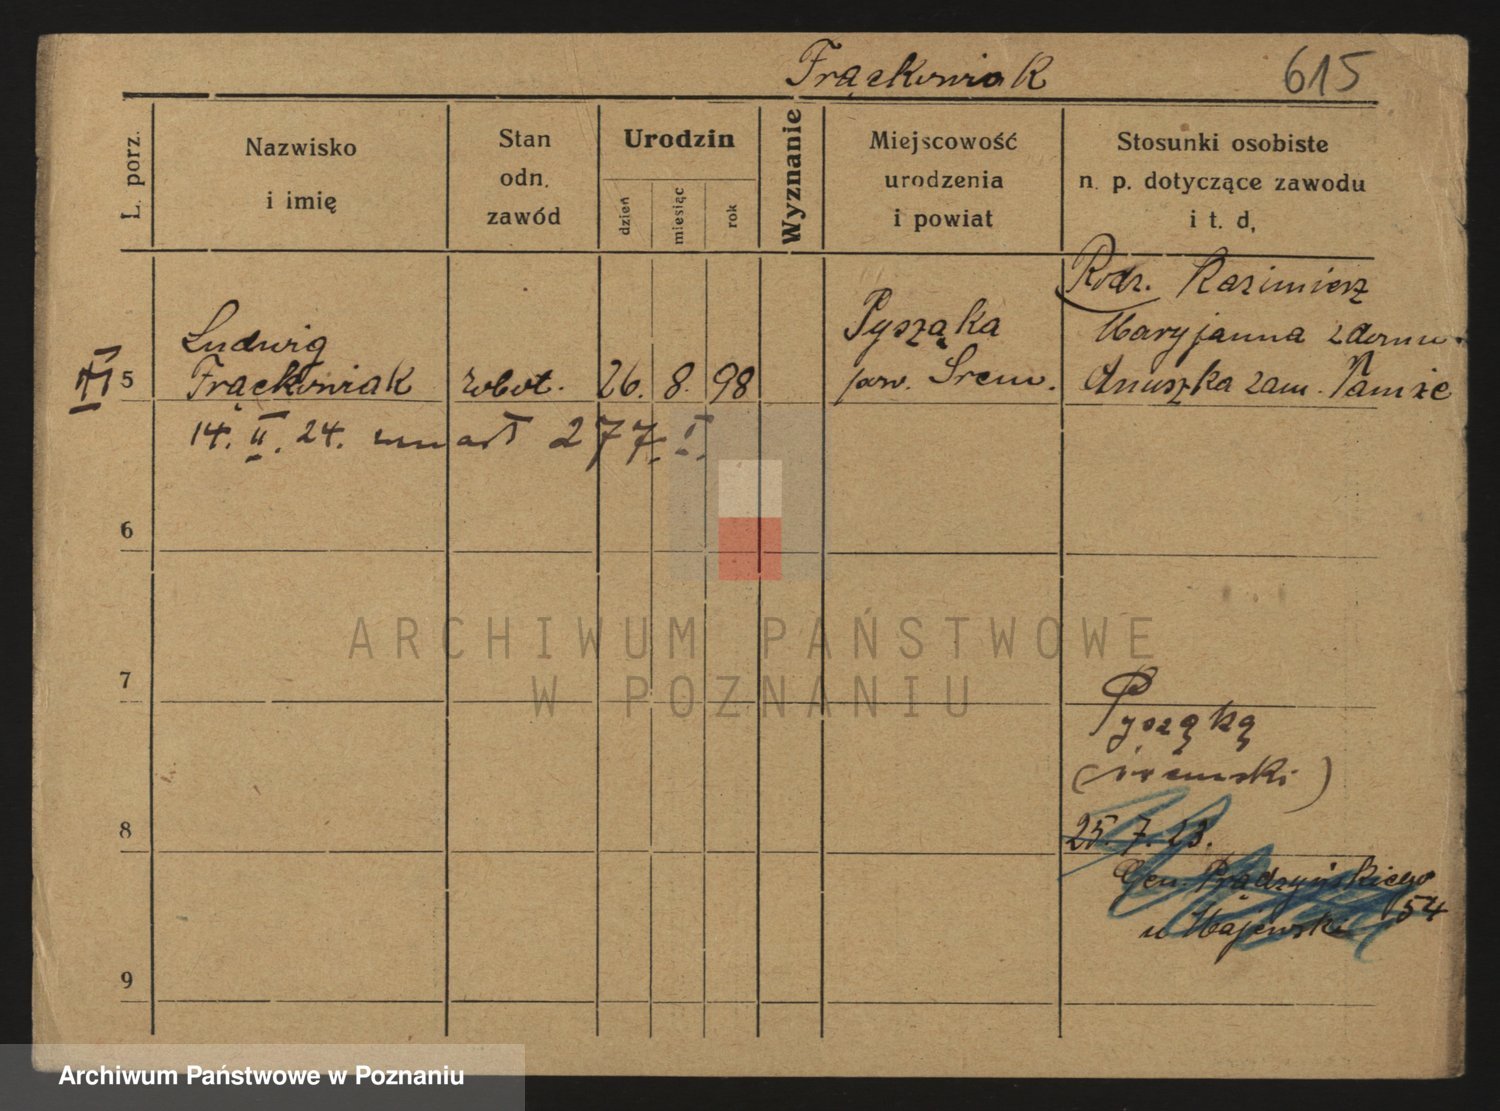 Frąckowiak 615
L. porz.
Nazwisko
i imię
Stan
odn.
zawód
Urodzin
dzień
miesiąc
rok
Wyznanie
Miejscowość
urodzenia
i powiat
Stosunki osobiste
n. p. dotyczące zawodu
i t. d,
Rodz. Kazimierz
Ludwig Pysząka Maryjanna z domu
5 Frąckowiak robot. 26. 8. 98 pow. Śrem. Anuszka zam. Tamże
14. II. 24. umarł 277. I.
6
ARCHIWUM PAŃSTWOWE
W POZNANIU
7
Pysząką
(śremski)
8 25. 7. 23.
Gen. Prądzyńskiego
54
u Majewski
9
Archiwum Państwowe w Poznaniu